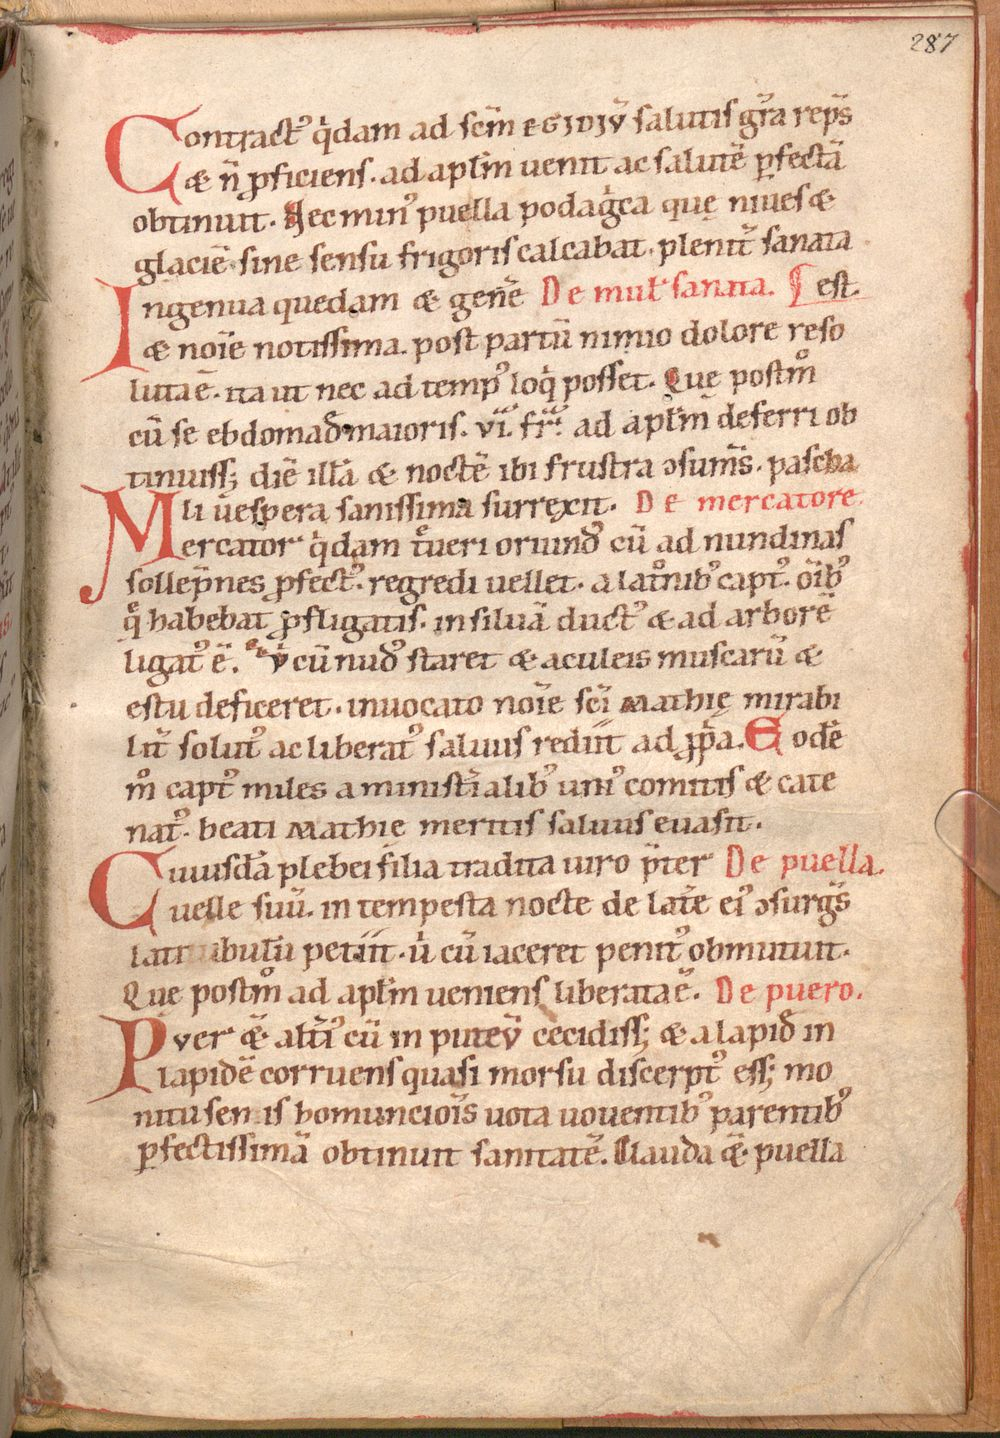 287
Contract᾽ q̇dam ad scm̄ EGIDIV̄ salutis gr̄a rep̄s
& n̄ ꝓficiens. ad apl̄m uenit ac salutē ꝑfectā
obtinuit. Nec min᾽ puella podag̈ca quę niues &
glaciē sine sensu frigoris calcabat. plenit᾽ sanata
Ingenua quedam & geñe De mul̄ sanata. ¶ est.
& noīe notissima. post partū nimio dolore reso
luta ē. ita ut nec ad temp᾽ loq̇ posset. Que postm̊
cū se ebdomad̄ maioris. vi. fr̄. ad apl̄m deferri ob
tinuiss; diē illā & noctē ibi frustra ɔsum̄s. pascha
li uespera sanissima surrexit. De mercatore.
Mercator q̇dam t̊ueri oriund᾽ cū ad nundinas
sollep̄nes ꝓfect᾽. regredi uellet. a lat̊nib᾽ capt᾽. oīb᾽
q̊ habebat ꝓfligatis. in siluā duct᾽ & ad arborē
ligat᾽ ē. v̇ cū nud᾽ staret & aculeis muscarū &
estu deficeret. inuocato noīe scī Mathię mirabi
lit᾽ solut᾽ ac liberat᾽ saluus rediit ad ꝓp̄a. Eodē
m̊ capt᾽ miles a ministīalib᾽ uni᾽ comitis & cate
nat᾽. beati Mathię meritis saluus euasit.
Cuiusdā plebei filia tradita uiro p̄ter De puella.
uelle suū. in tempesta nocte de lat̄e ei᾽ ɔsurḡs
latibulū petiit. u̇ cū iaceret penit᾽ obmutuit.
Que postm̊ ad apl̄m ueniens liberata ē. De puero.
Pver & alt̄i᾽ cū in putev̄ cecidiss; & a lapid᾽ in
lapidē corruens quasi morsu discerpt᾽ ess; mo
nitu senis homuncioīs uota uouentib᾽ parentib᾽
ꝑfectissimā obtinuit sanitatē. Clauda &̄ puella